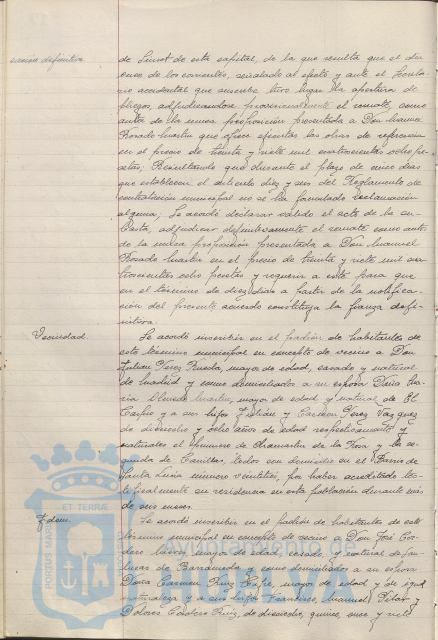 cación definitiva
de Linot de esta capital, de la que resulta que el día
once de los corrientes, señalado al efecto y ante el Secreta-
rio accidental que suscribe tuvo lugar la apertura de
pliegos, adjudicándose provisionalmente el remate, como
autor de la única proposición presentada a Don Manuel
Rosado Martín que ofrece ejecutar las obras de referencia
en el precio de treinta y siete mil cuatrocientas ocho pe-
setas; Resultando que durante el plazo de cinco días
que establece el artículo diez y seis del Reglamento de
contratación municipal no se ha formulado reclamación
alguna; Se acordó declarar válido el acto de la su-
basta, adjudicar definitivamente el remate como autor
de la única proposición presentada a Don Manuel
Rosado Martín en el precio de treinta y siete mil cua-
trocientas ocho pesetas y requerir a este para que
en el término de diez días a partir de la notifica-
ción del presente acuerdo constituya la fianza defi-
nitiva.
Vecindad.
Se acordó inscribir en el padrón de habitantes de
este término municipal en concepto de vecino a Don
Julián Pérez Rueda, mayor de edad, casado y natural
de Madrid y como domiciliados a su esposa Doña Ma-
ría Martín, mayor de edad y natural de El
Carpio y a sus hijos Julián y Carmen Pérez
de dieciocho y ocho años de edad respectivamente y
naturales el primero de Chamartín de la Rosa y la se-
gunda de Canillas, todos con domicilio en el Barrio de
Santa Luisa número veintitrés, por haber acreditado
su residencia en esta población durante más
de seis meses.
Idem.
Se acordó inscribir en el padrón de habitantes de este
término municipal en concepto de vecino a Don José Cor-
dero mayor de edad, casado y natural de San-
lúcar de Barrameda y como domiciliados a su esposa
Doña Carmen Ruiz mayor de edad y de igual
naturaleza y a sus hijos Francisco, Manuel, Pilar y
Dolores Cordero Ruiz, de dieciocho, quince, once y siete
ET TERRA
PORTUS MARIS
Ayuntamiento de